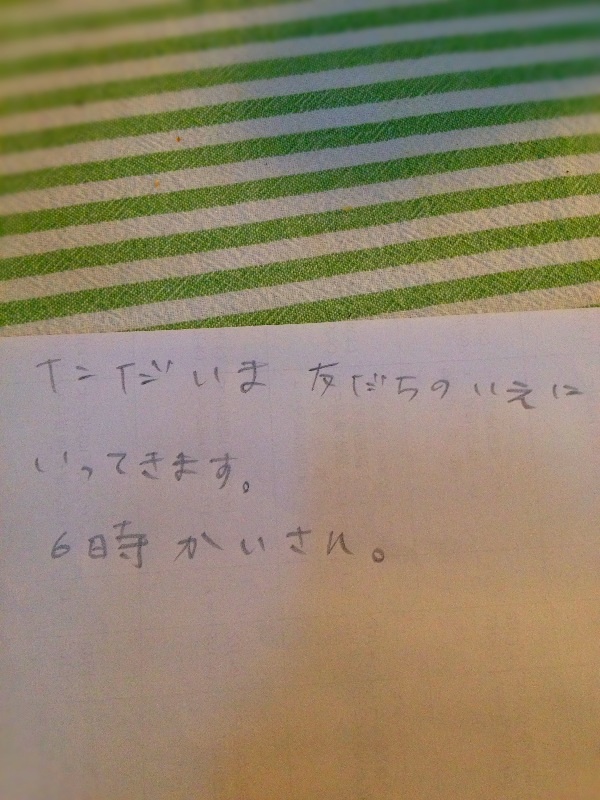 ただいま 友だちのいえに
いってきます。
6時 かいさん。